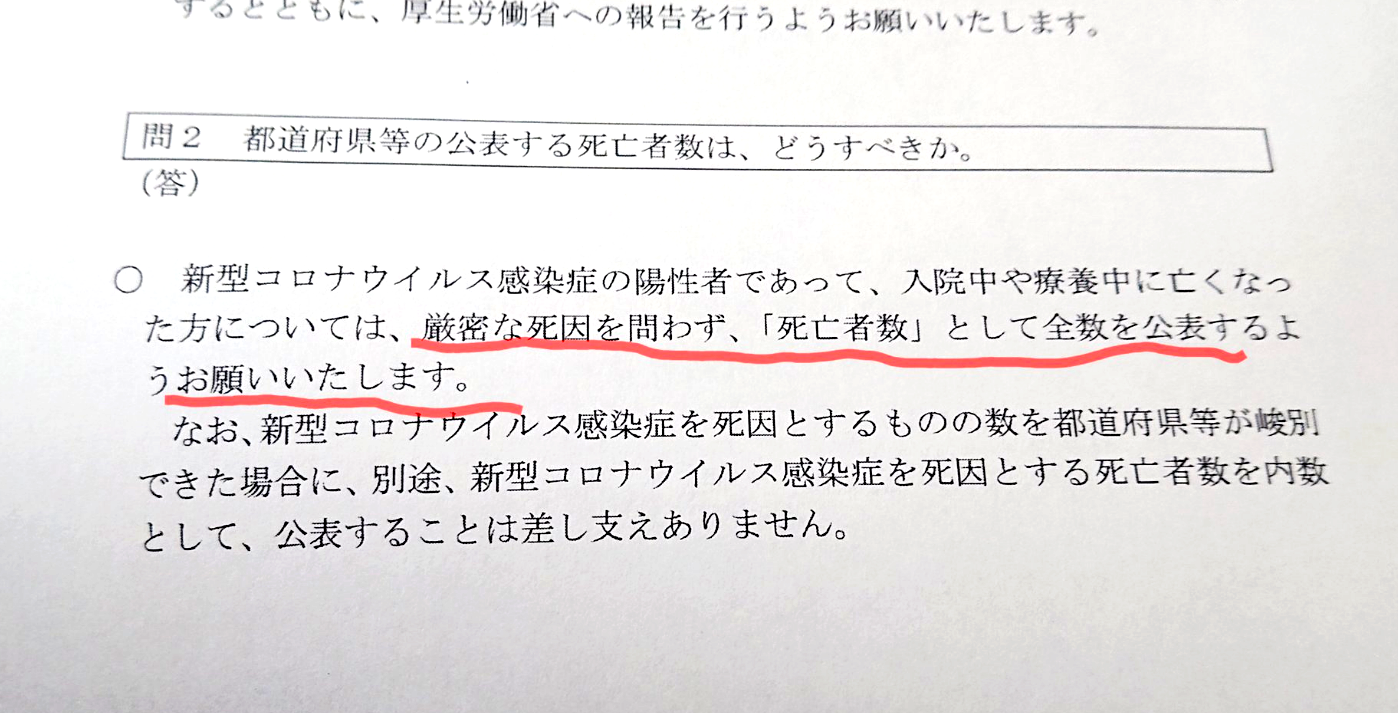 するとともに、厚生労働省への報告を行うようお願いいたします。
問2 都道府県等の公表する死亡者数は、どうすべきか。
(答)
○ 新型コロナウイルス感染症の陽性者であって、入院中や療養中に亡くなっ
た方については、厳密な死因を問わず、「死亡者数」として全数を公表するよ
うお願いいたします。
なお、新型コロナウイルス感染症を死因とするものの数を都道府県等が峻別
できた場合に、別途、新型コロナウイルス感染症を死因とする死亡者数を内数
として、公表することは差し支えありません。